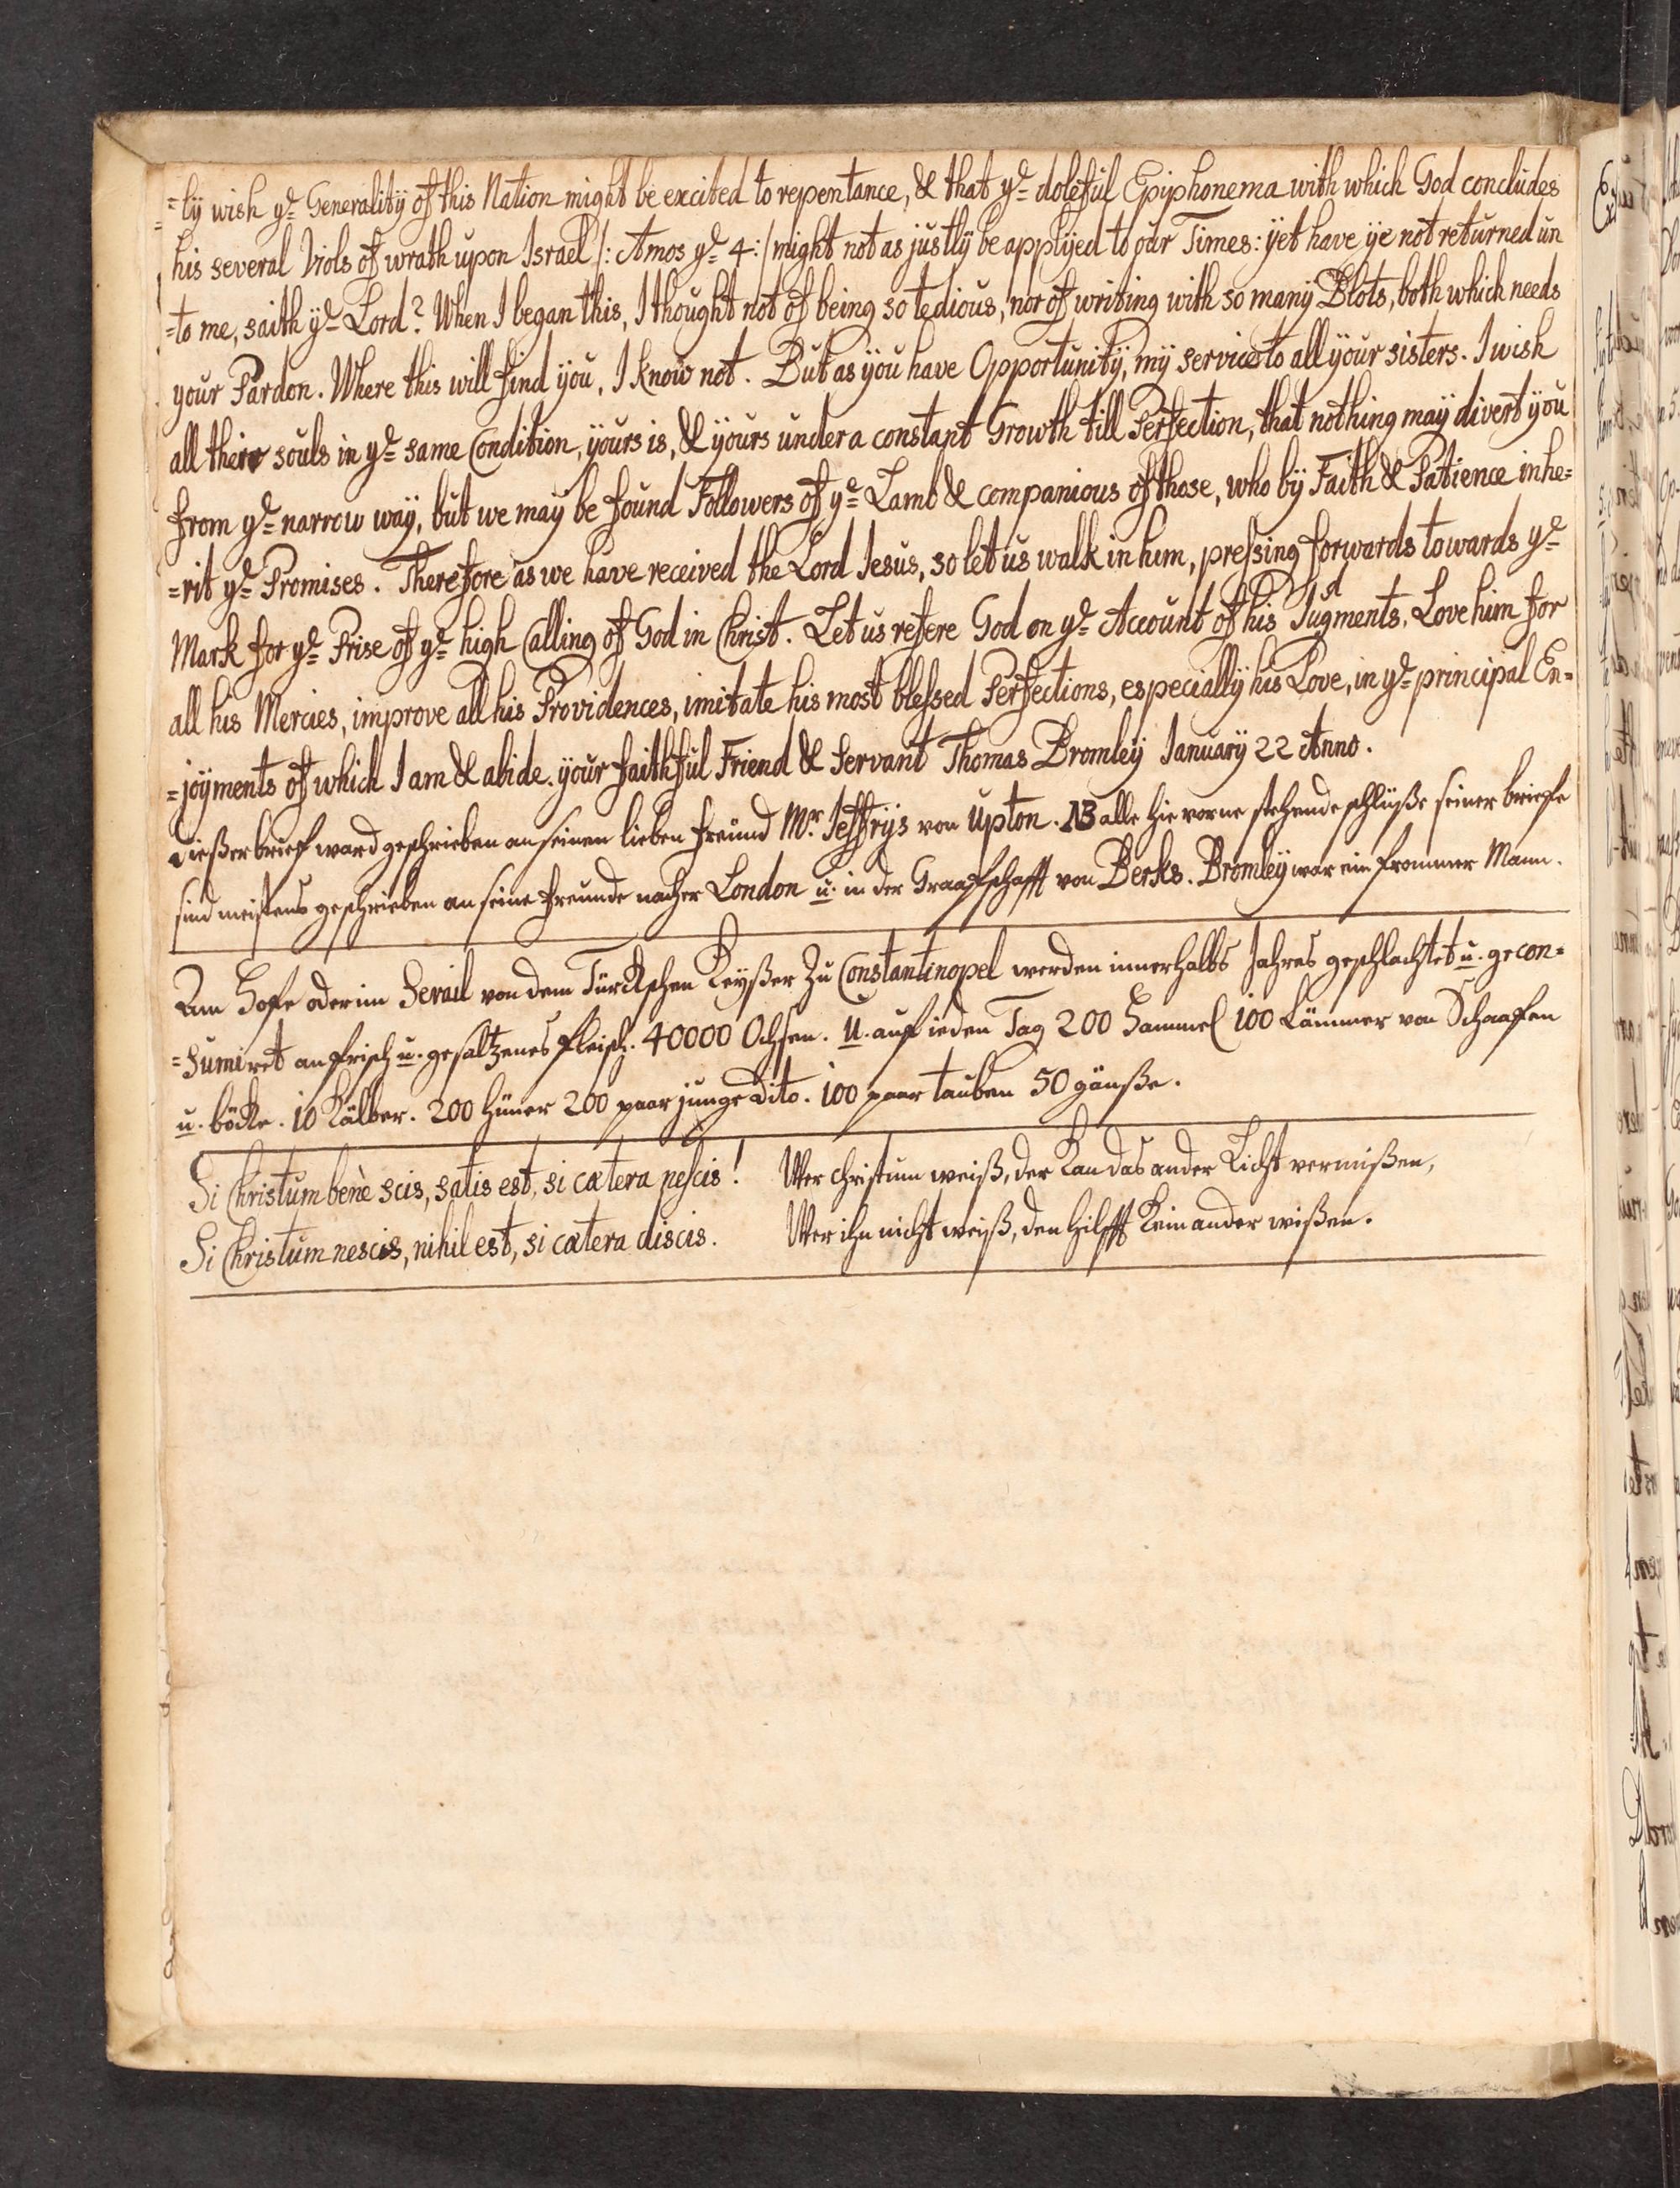 =ly wish ye Generality of this Nation might be excited to repentance, & that ye doleful Epiphonema with which God concludes
his several Viols of wrath upon Israel /: Amos ye 4 :/ might not as justly be applyed to our Times: yet have ye not returned un
=to me, saith ye Lord? When I began this, I thought not of being so tedious, nor of writing with so many Blots, both which needs
your Pardon. Where this will find you, I know not. But as you have Opportunity, my service to all your sisters. I wish
all their souls in ye same Condition, yours is, & yours under a constant Growth till Perfection, that nothing may divert you
from ye narrow way, but we may be found Followers of ye Lamb & companious of those, who by Faith & Patience inhe=
=rit ye Promises. Therefore as we have received the Lord Jesus, so let us walk in him, pressing forwards towards ye
Mark for ye Prise of ye high Calling of God in Christ. Let us refere God on ye Account of his Judgments. Love him for
all his Mercies, improve all his Providences, imitate his most blessed Perfections, especially his Love, in ye principal En=
=joyments of which I am & abide. your faithful Friend & Servant Thomas Bromley January 22 Anno.
Dießer brief ward geschrieben an seinen lieben freund Mr. Jeffrys von Upton. NB alle hie vorne stehende schlüße seiner briefe
sind meistens geschrieben an seine freunde nacher London u. in der Graafschafft von Berks. Bromley war ein frommer Mann.
Am Hofe oder im Serail von dem Türckschen Keyßer Zu Constantinopel werden innerhalbs Jahres geschlachtet u. gecon=
=sumiret an frisch u. gesaltzenes fleisch. 40000 Ochsen. u. auf ieden Tag 200 Hammel 100 Lämmer von Schaafen
u. böcke. 10 Kälber. 200 hüner 200 paar junge dito. 100 paar tauben 50 gänße.
Si Christum benè scis, satis est, si cætera nescis! Wer christum weiß, der kan das ander Licht vermißen,
Si Christum nescis, nihil est, si cætera discis. Wer ihn nicht weiß, den hilfft kein ander wißen.